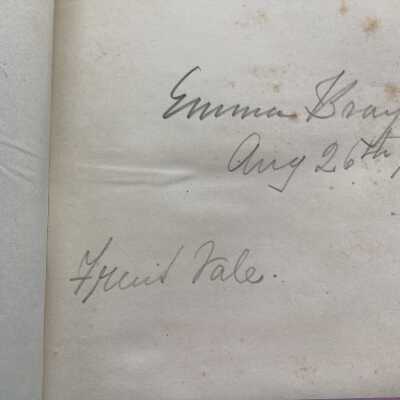 Emma Bray
Aug 26th,
Fruit Vale.